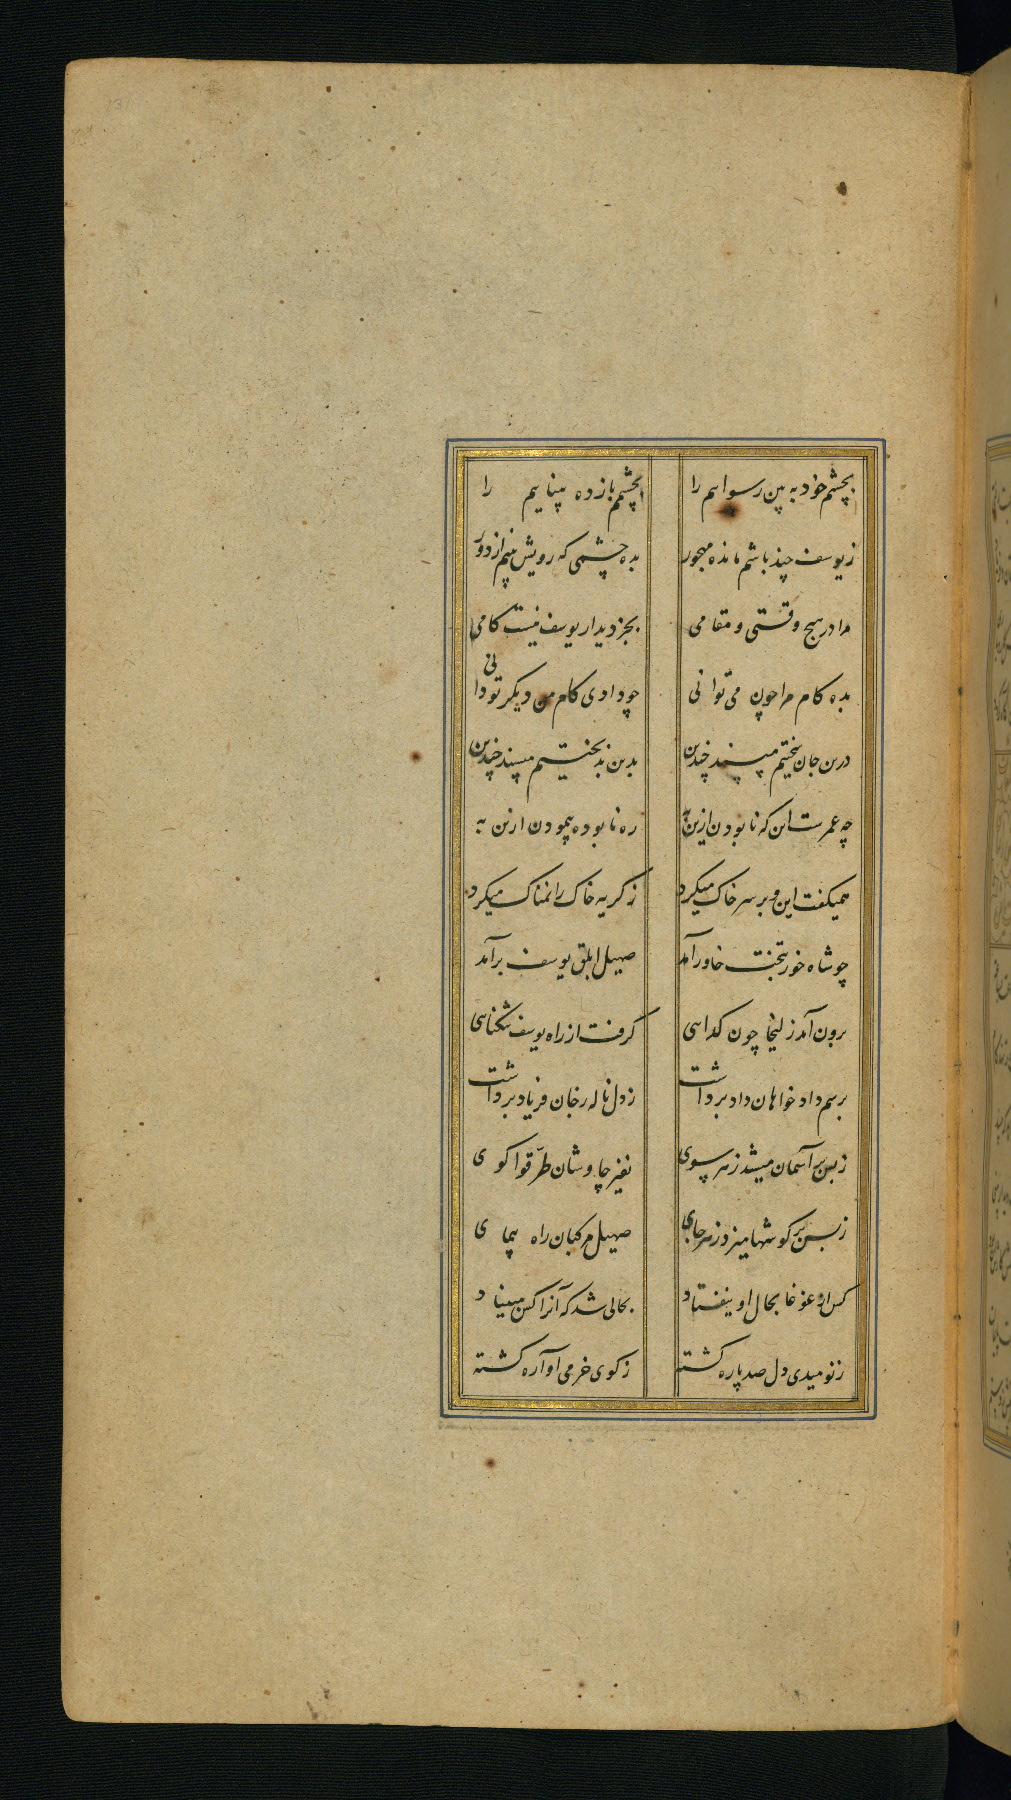 131
بچشم خود به بین رسوائیم را بچشمم باز ده بینائیم را
ز یوسف چند باشم مانده مهجور بده چشمی که رویش بینم از دور
مرا در هیچ وقتی و مقامی بجز دیدار یوسف نیست کامی
بده کام مرا چون می توانی چو دادی کام من دیگر تو دانی
درین جان سختیم مپسند چندین بدین بدبختیم مپسند چندین
چه عمرست این که نابودن ازین به ره نابوده پیمودن ازین به
همیگفت این و بر سر خاک میکرد ز گریه خاک را نمناک میکرد
چو شاه خور بتخت خاور آمد صهیل ابلق یوسف برآمد
برون آمد زلیخا چون گدایی گرفت از راه یوسف تنگنایی
برسم دادخواهان داد برداشت ز دل ناله ز جان فریاد برداشت
ز بس بر آسمان میشد ز هر سوی نفیر چاوشان طرّقوا گوی
ز بس بر گوشها میزد ز هر جای صهیل مرکبان راه پیمای
کس از غوغا بحال او نیفتاد بحالی شد که آنرا کس مبیناد
ز نومیدی دل صد پاره گشته ز کوی خرمی آواره گشته